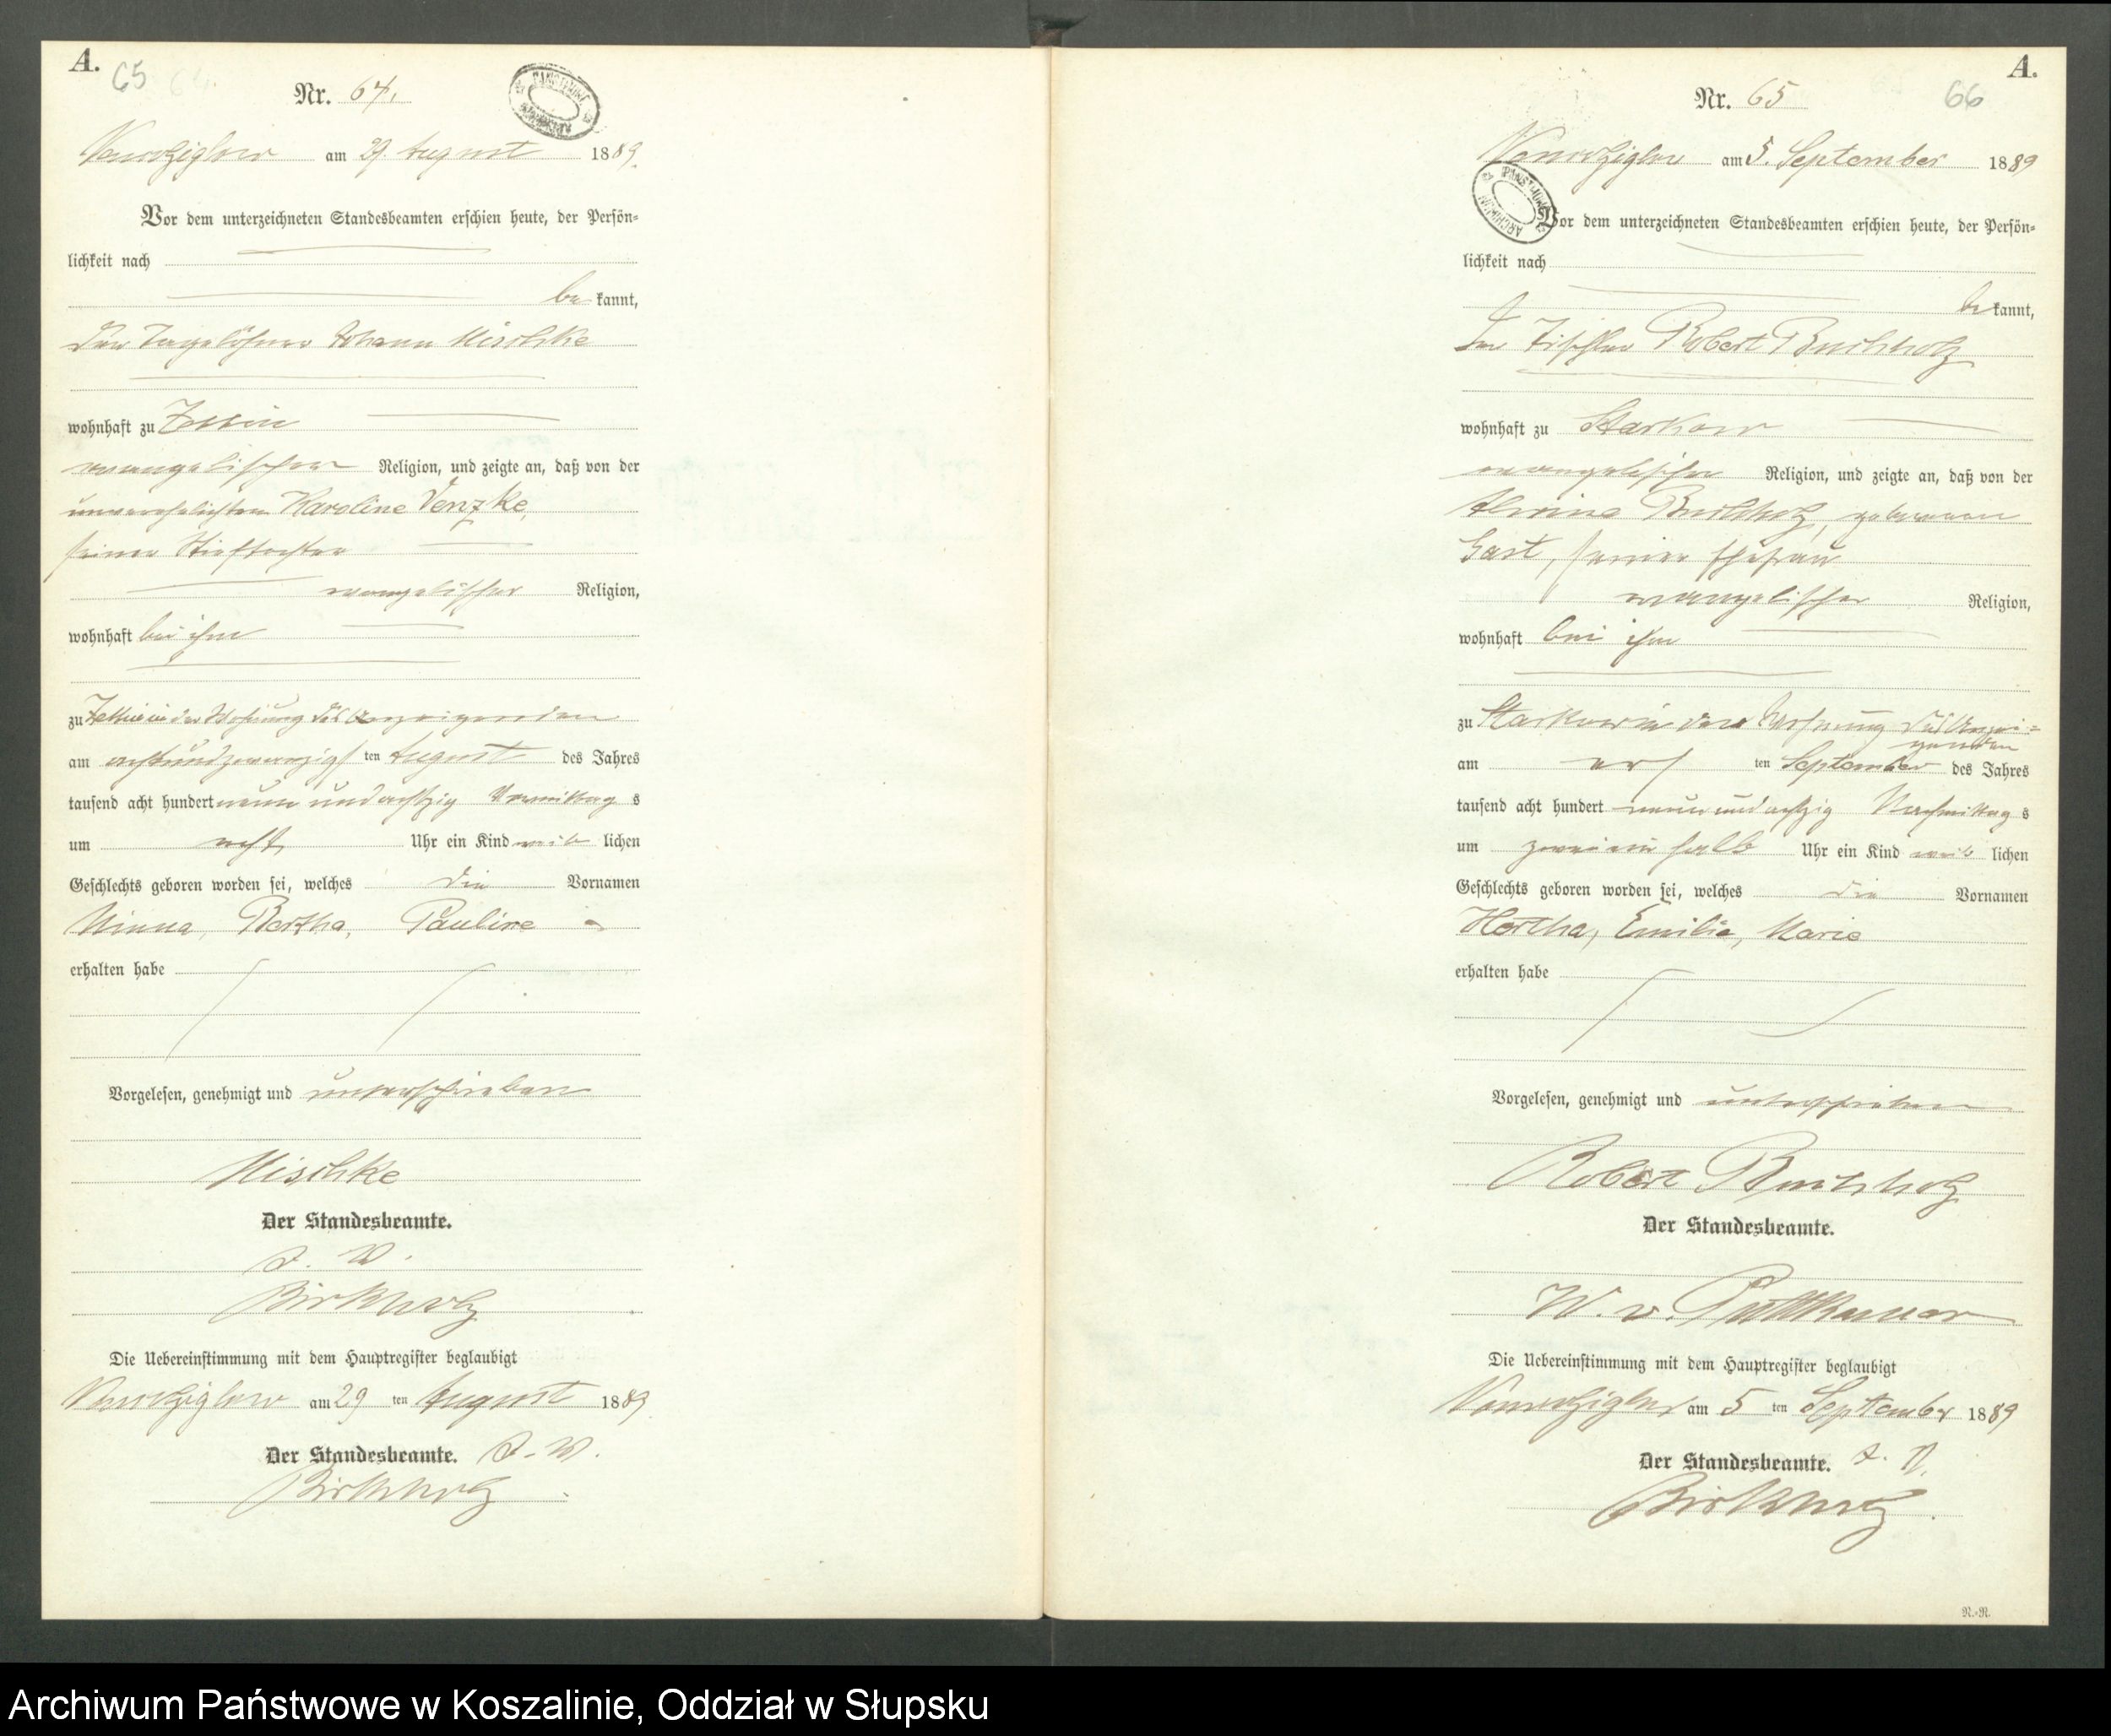 A.
65
Nr. 64.
Versin am 29. August 1889.
Vor dem unterzeichneten Standesbeamten erschien heute, der Persön-
lichkeit nach
be kannt,
der Tagelöhner Johann Mischke
wohnhaft zu Zettin
evangelischer Religion, und zeigte an, daß von der
unverehelichten Karoline Venzke,
seiner Stieftochter
evangelischer Religion,
wohnhaft bei ihm
zu Zettin in der Wohnung des Anzeigenden
am achtundzwanzigsten August des Jahres
tausend acht hundert neun und achtzig Vormittag s
um acht Uhr ein Kind weib lichen
Geschlechts geboren worden sei, welches die Vornamen
Minna, Bertha, Pauline
erhalten habe
Vorgelesen, genehmigt und unterschrieben
Mischke
Der Standesbeamte.
J. V.
Birkholz
Die Uebereinstimmung mit dem Hauptregister beglaubigt
am 29 ten August 1889
Der Standesbeamte. J. V.
Birkholz
A.
66
Nr. 65
am 5. September 1889
Vor dem unterzeichneten Standesbeamten erschien heute, der Persön-
lichkeit nach
be kannt,
der Tischler Robert Buchholz
wohnhaft zu Starkow
evangelischer Religion, und zeigte an, daß von der
Alwine Buchholz, geborenen
Gast, seiner Ehefrau
evangelischer Religion,
wohnhaft bei ihm
zu Starkow in der Wohnung des Anzei-
genden
am ers ten September des Jahres
tausend acht hundert neun und achtzig Nachmittag s
um zwei ein halb Uhr ein Kind weib lichen
Geschlechts geboren worden sei, welches die Vornamen
Hertha, Emilie, Marie
erhalten habe
Vorgelesen, genehmigt und unterschrieben
Robert Buchholz
Der Standesbeamte.
W. v. Puttkamer
Die Uebereinstimmung mit dem Hauptregister beglaubigt
am 5 ten September 1889
Der Standesbeamte. J. V.
Birkholz
N.-N.
Archiwum Państwowe w Koszalinie, Oddział w Słupsku